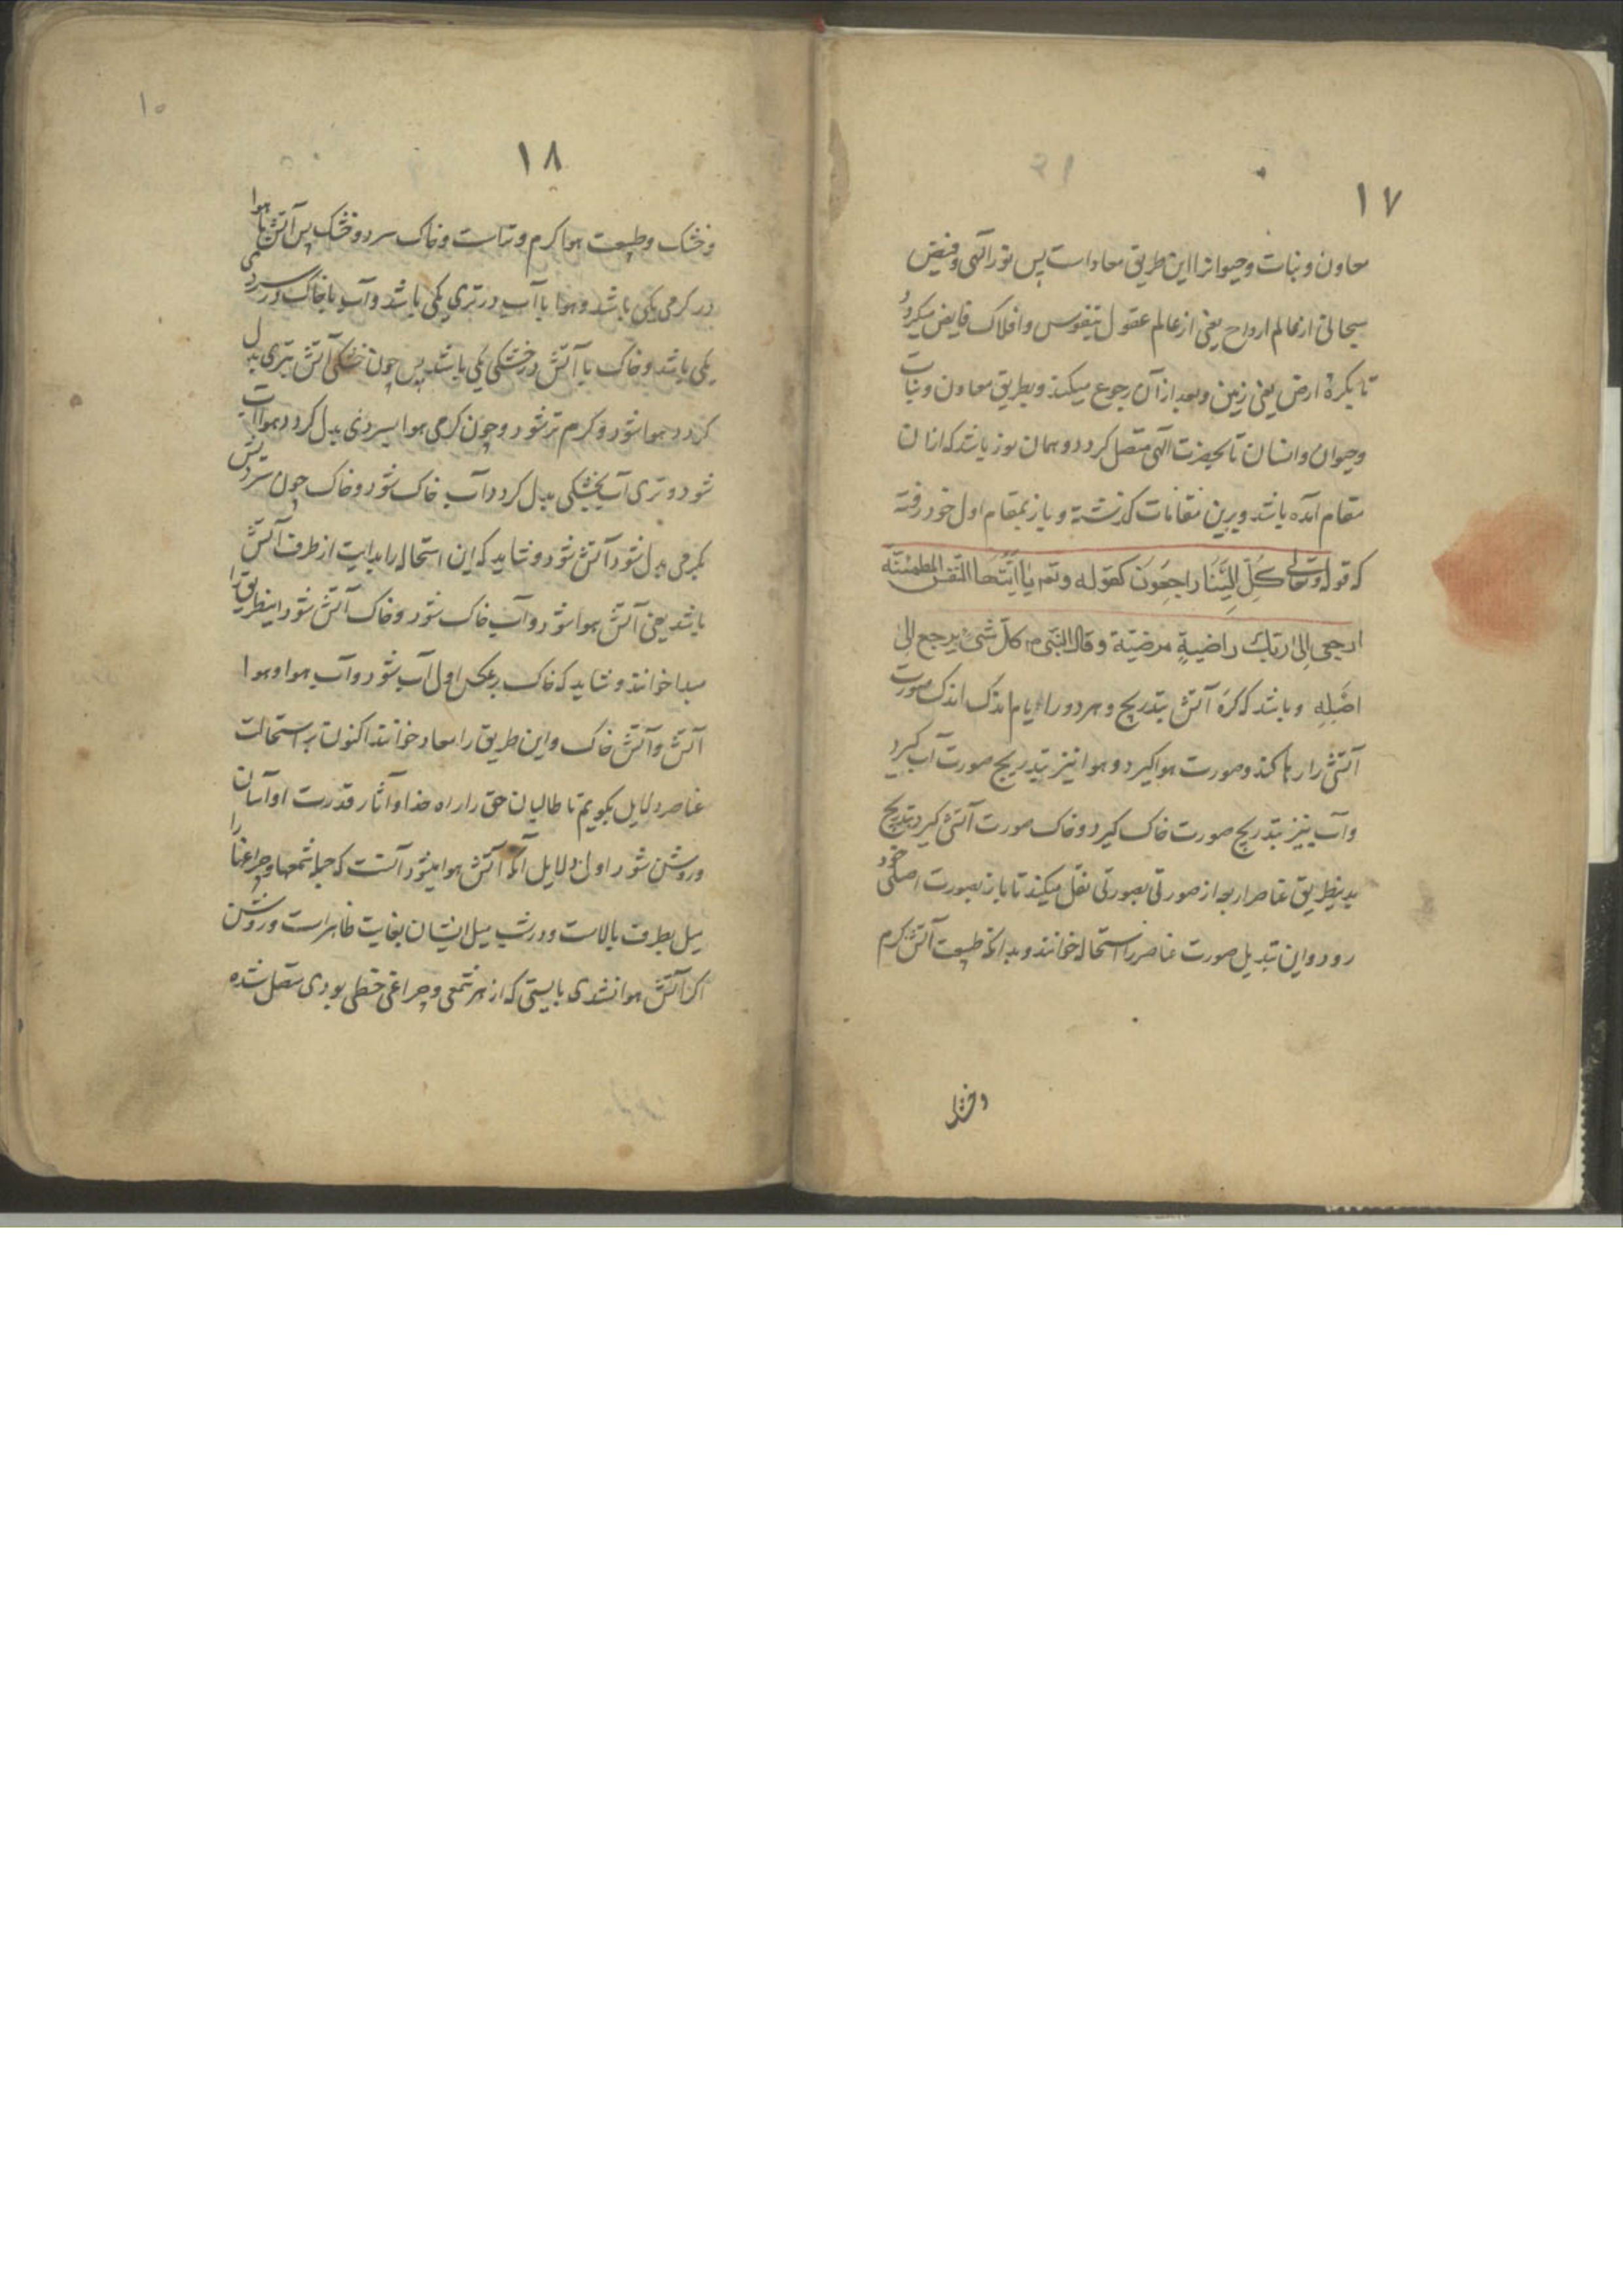 ١٧
معاون و نبات و حیوانرا این طریق معاد است پس نور آلهی و فیض
سبحانی از عالم ارواح یعنی از عالم عقول بنفوس و افلاک فایض میکردد
تا بکرهٔ ارض یعنی زمین و بعد از آن رجوع میکند و بطریق معاون و نبات
و حیوان و انسان تا بحضرت آلهی متصل کردد و همان نور باشد که ازان
مقام آمده باشد و برین مقامات کذشته و باز بمقام اول خود رفته
که قوله وتعالی كُلّ اِلَيْنَا راجِعُونَ کقوله وتع يا اَيَّتُهَا النّفس المطمئنّه
ارجعی اِلی ربّكِ راضيةٍ مرضيّة و قال النّبی م کلّ شیْ یرجع اِلی
اصْلِهِ و باشد که کرهٔ آتش بتدریج و بهر دور ایام اندک اندک صورت
آتشی را رها کند و صورت هوا کیرد و هوا نیز بتدریج صورت آب کیرد
و آب نیز بتدریج صورت خاک کیرد و خاک صورت آتشی کیرد بتدریج
بدینطریق عناصر اربعه از صورتی بصورتی نقل میکند تا باز بصورت اصلی خود
رود و این تبدیل صورت عناصر را استحاله خوانند و بدانکه طبیعت آتش کرم
و خشک
١٨
١٠
و خشک و طبیعت هوا کرم و تر است و خاک سرد و خشک پس آتش با هوا
در کرمی یکی باشد و هوا با آب در تری یکی باشد و آب با خاک در سردی
یکی باشد و خاک با آتش در خشکی یکی باشد پس چون خشکی آتش بتری بدل
کردد هوا شود و کرم تر شود و چون کرمی هوا بسردی بدل کردد هوا آب
شود و تری آب بخشکی بدل کردد آب خاک شود و خاک چون سردیش
بکرمی بدل شود آتش شود و شاید که این استحاله را بدایت از طرف آتش
باشد یعنی آتش هوا شود و آب خاک شود و خاک آتش شود اینطریق را
مبدا خوانند و شاید که خاک بر عکس اول آب شود و آب هوا و هوا
آتش و آتش خاک و این طریق را معاد خوانند اکنون بر استحالت
عناصر دلایل بکویم تا طالبان حق را راه خدا و آثار قدرت او آسان
و روشن شود اول دلایل آنکه آتش هوا میشود آنست که جمله شمعها و چراغها را
میل بطرف بالاست و در شب میل ایشان بغایت ظاهر است و روشن
اکر آتش هوا نشدی بایستی که از هر شمعی و چراغی خطی بودی متصل شده